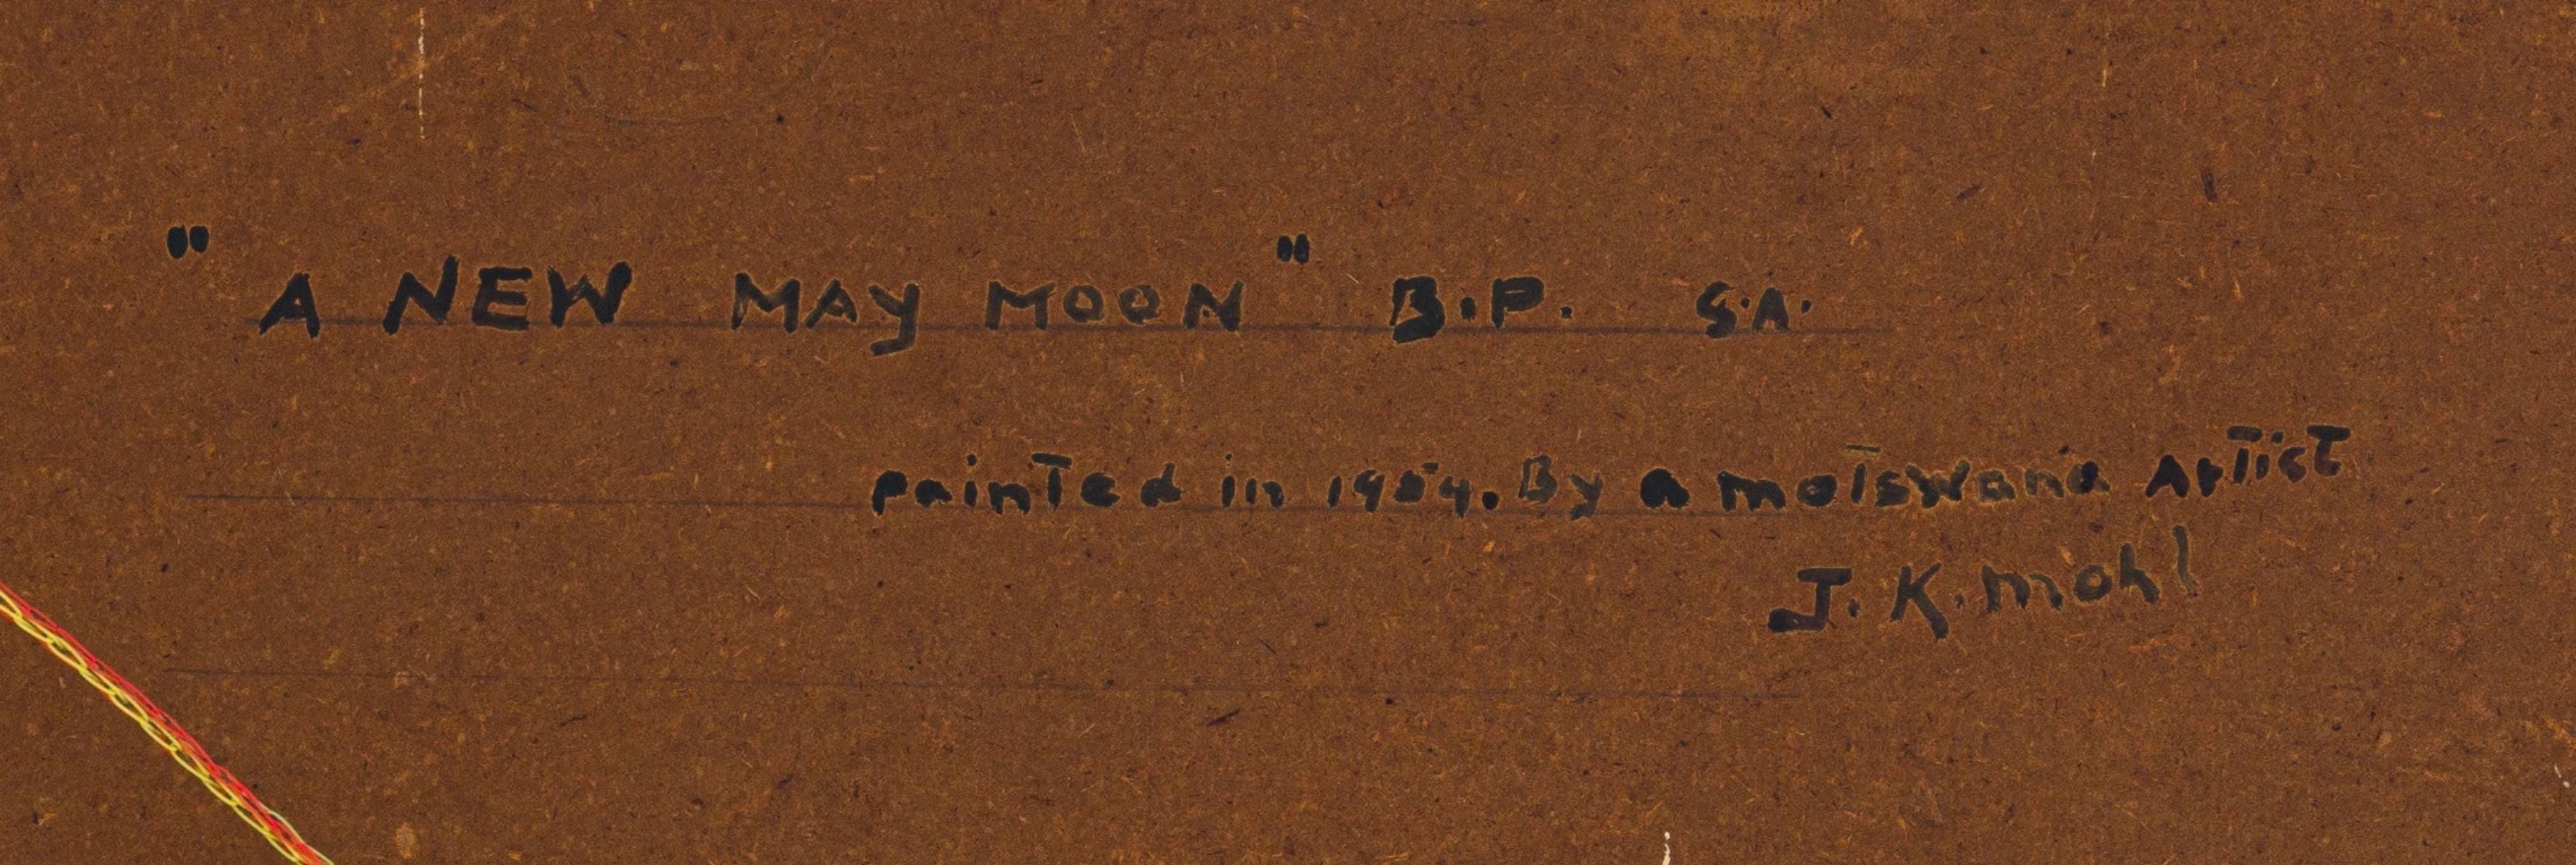 "A NEW MAY MOON" B.P. S.A.
painted in 1954. By a motswana Artist
J.K.mohl